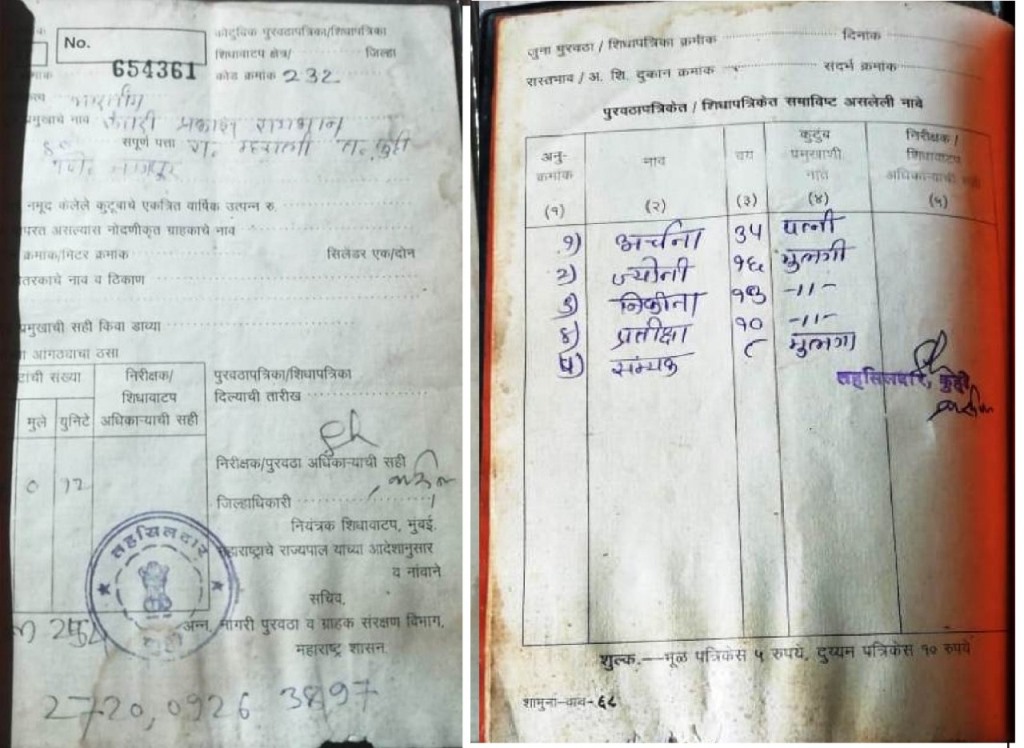 No.
654361
कौटुंबिक पुरवठापत्रिका/शिधापत्रिका
शिधावाटप क्षेत्र/ जिल्हा
कोड क्रमांक 232
भारतीय
प्रमुखाचे नाव प्रकाश रामभान
80 संपूर्ण पत्ता रा. म्हसली ता. कुही
नागपूर
नमूद केलेले कुटूंबाचे एकत्रित वार्षिक उत्पन्न रु.
परत असल्यास नोंदणीकृत ग्राहकाचे नाव
क्रमांक/मिटर क्रमांक सिलेंडर एक/दोन
तरकाचे नाव व ठिकाण
प्रमुखाची सही किंवा डाव्या
आंगठ्याचा ठसा
टांची संख्या
निरीक्षक/
शिधावाटप
अधिकाऱ्याची सही
मुले युनिटे
0 12
पुरवठापत्रिका/शिधापत्रिका
दिल्याची तारीख
निरीक्षक/पुरवठा अधिकाऱ्याची सही
जिल्हाधिकारी
नियंत्रक शिधावाटप, मुंबई.
महाराष्ट्राचे राज्यपाल यांच्या आदेशानुसार
व नांवाने
सचिव,
अन्न, नागरी पुरवठा व ग्राहक संरक्षण विभाग,
महाराष्ट्र शासन.
तहसिलदार
कुही
2720,0926 3897
जुना पुरवठा / शिधापत्रिका क्रमांक दिनांक
रास्तभाव / अ. शि. दुकान क्रमांक संदर्भ क्रमांक
पुरवठापत्रिकेत / शिधापत्रिकेत समाविष्ट असलेली नावे
अनु-
क्रमांक
(१)
नाव
(२)
वय
(३)
कुटुंब
प्रमुखाशी
नाते
(४)
निरीक्षक /
शिधावाटप
अधिकाऱ्याची सही
(५)
१) अर्चना ३५ पत्नी
२) ज्योती १६ मुलगी
३) निकीता १३ -11-
४) प्रतीक्षा १० -11-
५) सम्यक ८ मुलगा
तहसिलदार, कुही
शुल्क.—मूळ पत्रिकेस ५ रुपये, दुय्यम पत्रिकेस १० रुपये
शामुना-वाव-६८